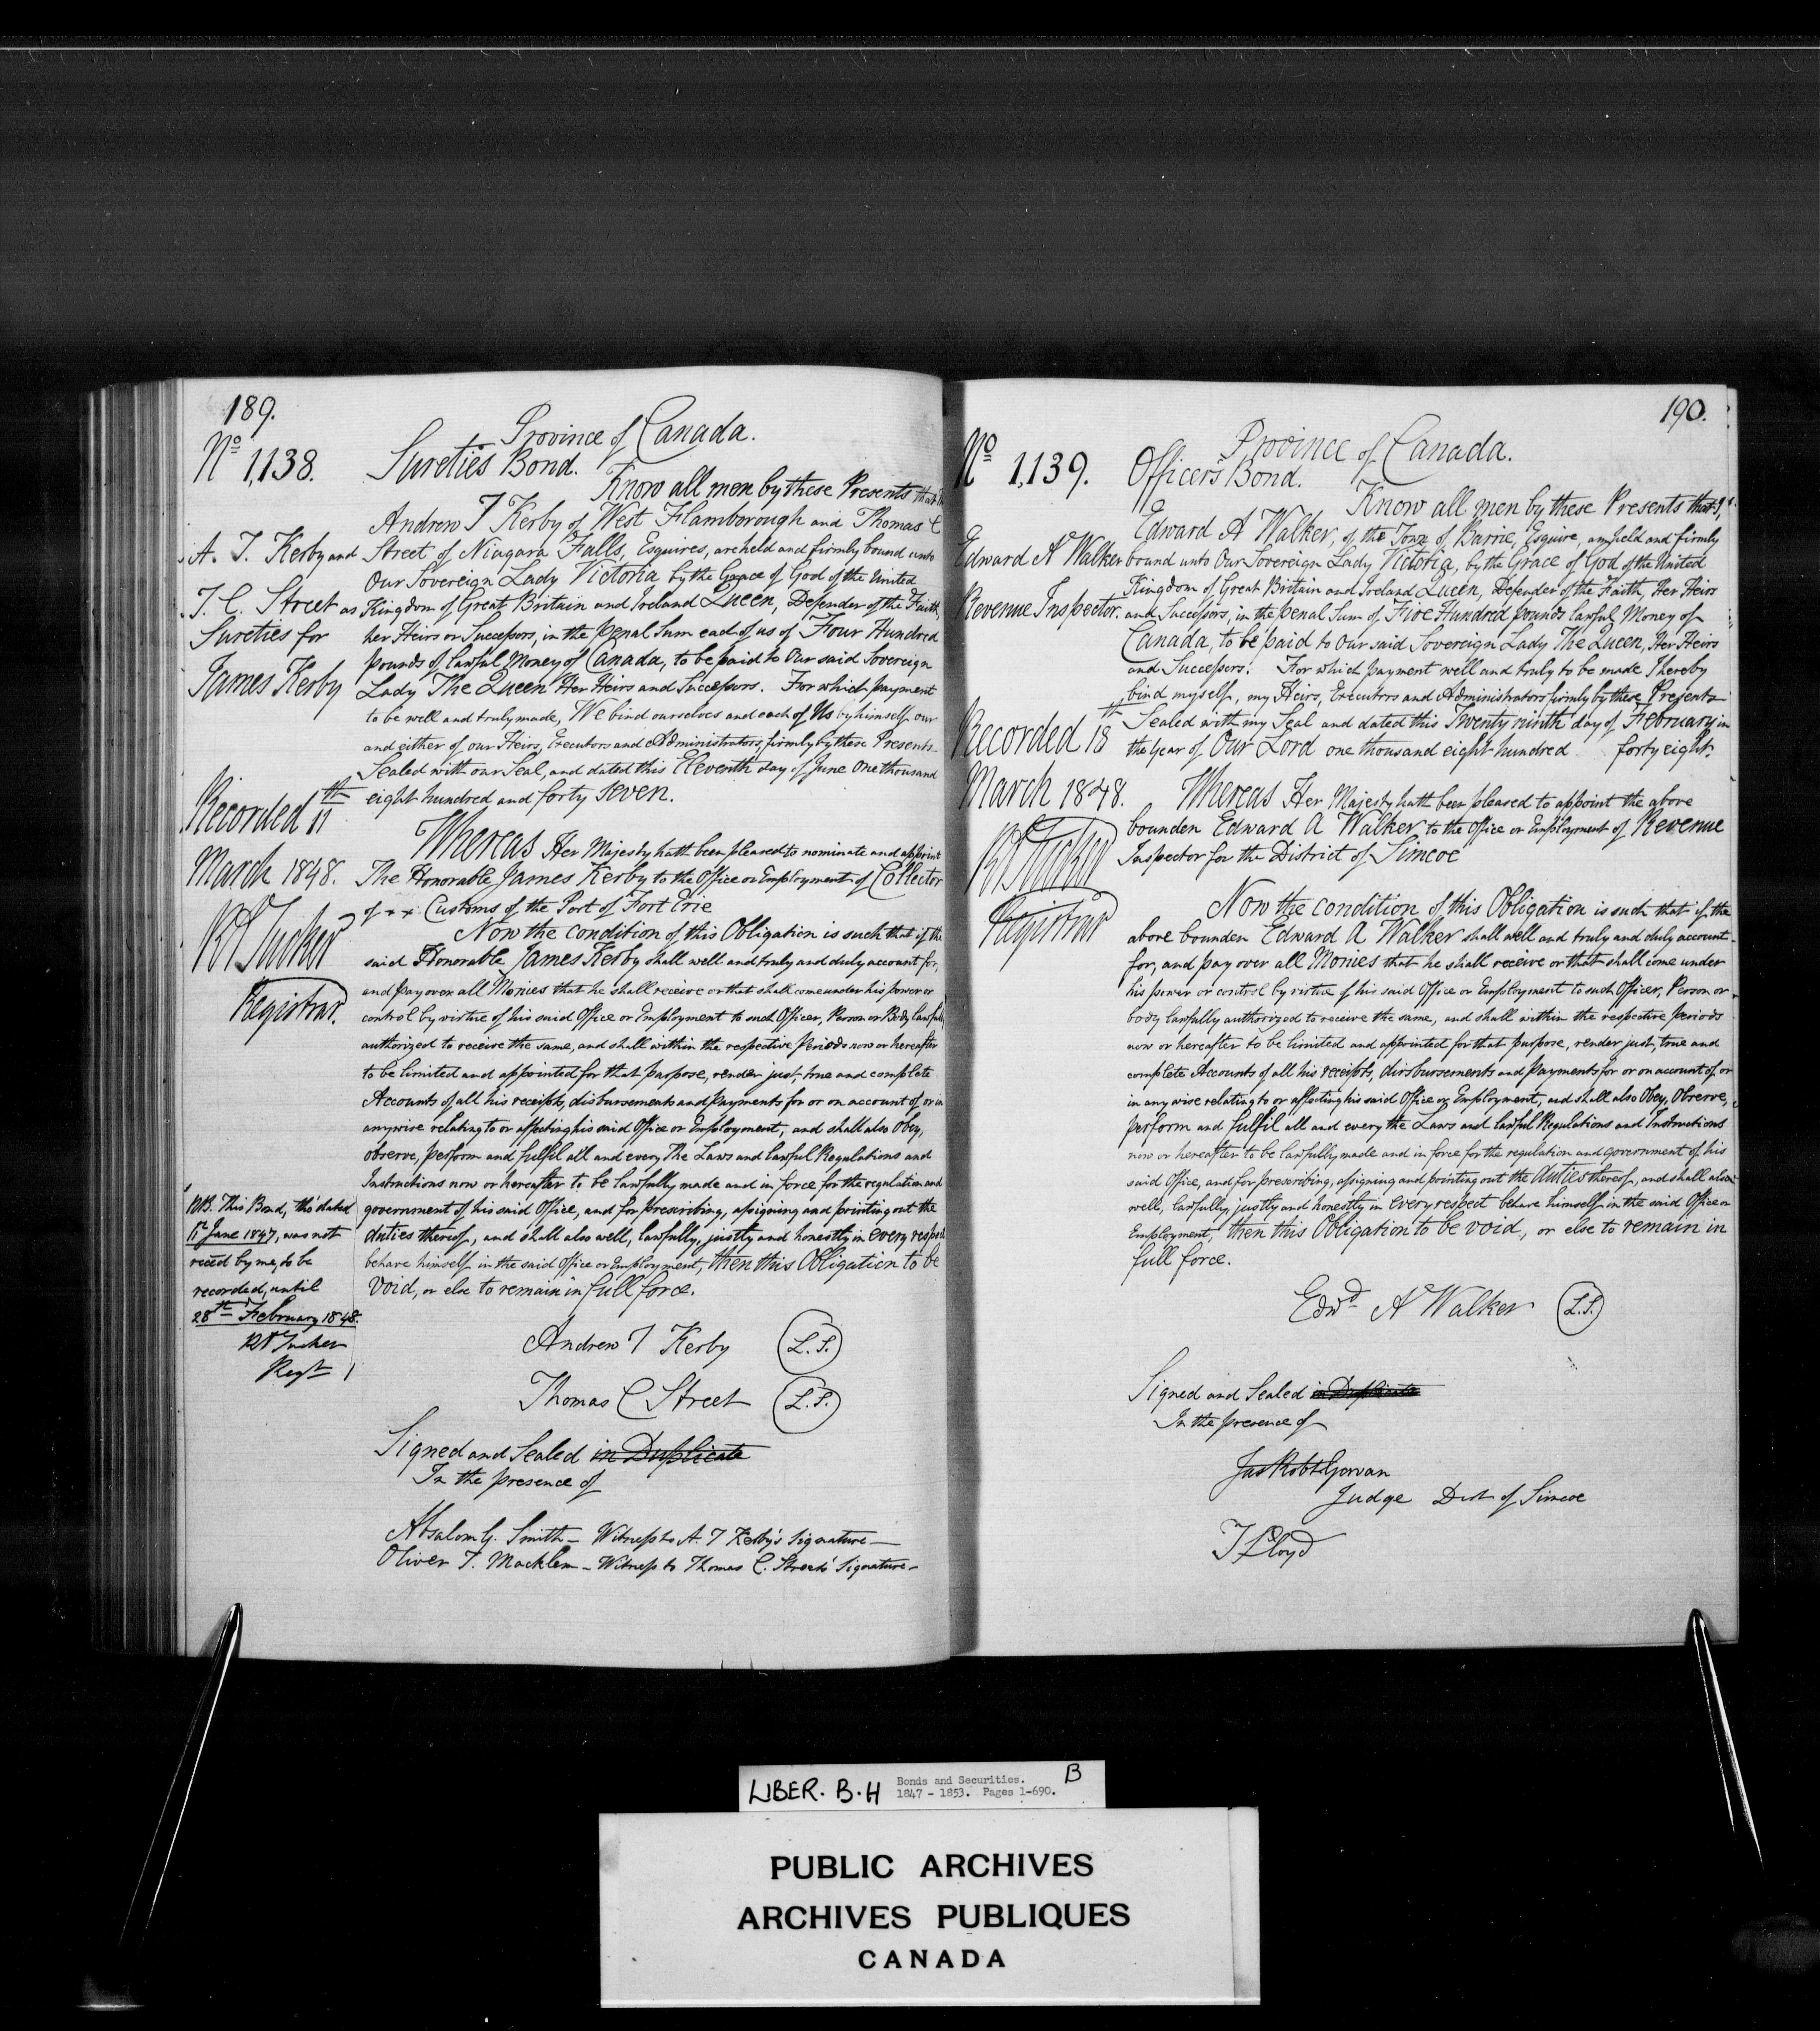 189.
Province of Canada.
No 1,138.
Sureties Bond.
Know all men by these Presents that
Andrew T Kerby of West Flamborough and Thomas C
Street of Niagara Falls, Esquires, are held and firmly bound unto
Our Sovereign Lady Victoria by the Grace of God of the United
Kingdom of Great Britain and Ireland Queen, Defender of the Faith,
her Heirs or Successors, in the penal Sum each of us of Four Hundred
pounds of lawful Money of Canada, to be paid to Our said Sovereign
Lady The Queen Her Heirs and Successors. For which payment
to be well and truly made, We bind ourselves and each of Us by himself our
and either of our Heirs, Executors and Administrators, firmly by these Presents
Sealed with our Seal, and dated this Eleventh day of June One thousand
eight hundred and forty seven.
Whereas Her Majesty hath been pleased to nominate and appoint
The Honorable James Kerby to the Office or Employment of Collector
of Customs of the Port of Fort Erie
Now the condition of this Obligation is such that if the
said Honorable James Kerby shall well and truly and duly account for,
and pay over all Monies that he shall receive or that shall come under his power or
control by virtue of his said Office or Employment to such Officer, Person or Body lawfully
authorized to receive the same, and shall within the respective Periods now or hereafter
to be limited and appointed for that purpose, render just, true and complete
Accounts of all his receipts, disbursements and payments for or on account of, or in
anywise relating to or affecting his said Office or Employment, and shall also Obey,
observe, perform and fulfil all and every The Laws and lawful Regulations and
Instructions now or hereafter to be lawfully made and in force for the regulation and
government of his said Office, and for prescribing, assigning and pointing out the
duties thereof, and shall also well, lawfully, justly and honestly in every respect
behave himself in the said Office or Employment, then this Obligation to be
void, or else to remain in full force.
Andrew T Kerby L.S.
Thomas C Street L.S.
Signed and Sealed in Duplicate
In the presence of
Absalom G. Smith - Witness to A. T Kerby's Signature -
Oliver T. Macklem - Witness to Thomas C. Street's Signature -
A. T. Kerby and
T. C. Street as
Sureties for
James Kerby
Recorded 11th
March 1848.
RA Tucker
Registrar.
NB. This Bond, tho' dated
11th June 1847, was not
reced by me, to be
recorded, until
28th February 1848.
RA Tucker
Regr
190.
Province of Canada.
No 1,139.
Officer's Bond.
Know all men by these Presents that I,
Edward A Walker, of the Town of Barrie, Esquire, am held and firmly
bound unto Our Sovereign Lady Victoria, by the Grace of God of the United
Kingdom of Great Britain and Ireland Queen, Defender of the Faith, Her Heirs
and Successors, in the penal Sum of Five Hundred pounds lawful Money of
Canada, to be paid to Our said Sovereign Lady The Queen, Her Heirs
and Successors: For which payment well and truly to be made I hereby
bind myself, my Heirs, Executors and Administrators firmly by these Presents
Sealed with my Seal and dated this Twenty ninth day of February in
the Year of Our Lord one thousand eight hundred forty eight.
Whereas Her Majesty hath been pleased to appoint the above
bounden Edward A Walker to the Office or Employment of Revenue
Inspector for the District of Simcoe
Now the condition of this Obligation is such that if the
above bounden Edward A Walker shall well and truly and duly account
for, and pay over all Monies that he shall receive or that shall come under
his power or control by virtue of his said Office or Employment to such Officer, Person or
body lawfully authorized to receive the same, and shall within the respective periods
now or hereafter to be limited and appointed for that purpose, render just, true and
complete Accounts of all his receipts, disbursements and payments for or on account of, or
in any wise relating to or affecting his said Office or Employment, and shall also Obey, Observe,
perform and fulfil all and every the Laws and lawful Regulations and Instructions
now or hereafter to be lawfully made and in force for the regulation and government of his
said Office, and for prescribing, assigning and pointing out the duties thereof, and shall also
well, lawfully, justly and honestly in every respect behave himself in the said Office or
Employment, then this Obligation to be void, or else to remain in
full force.
Edwd A Walker L.S.
Signed and Sealed in Duplicate
In the presence of
Jas Robt Gowan
Judge Dist of Simcoe
T Lloyd
Edward A Walker
Revenue Inspector.
Recorded 18th
March 1848.
RA Tucker
Registrar
LIBER. B.H
Bonds and Securities.
1847 - 1853. Pages 1-690.
B
PUBLIC ARCHIVES
ARCHIVES PUBLIQUES
CANADA